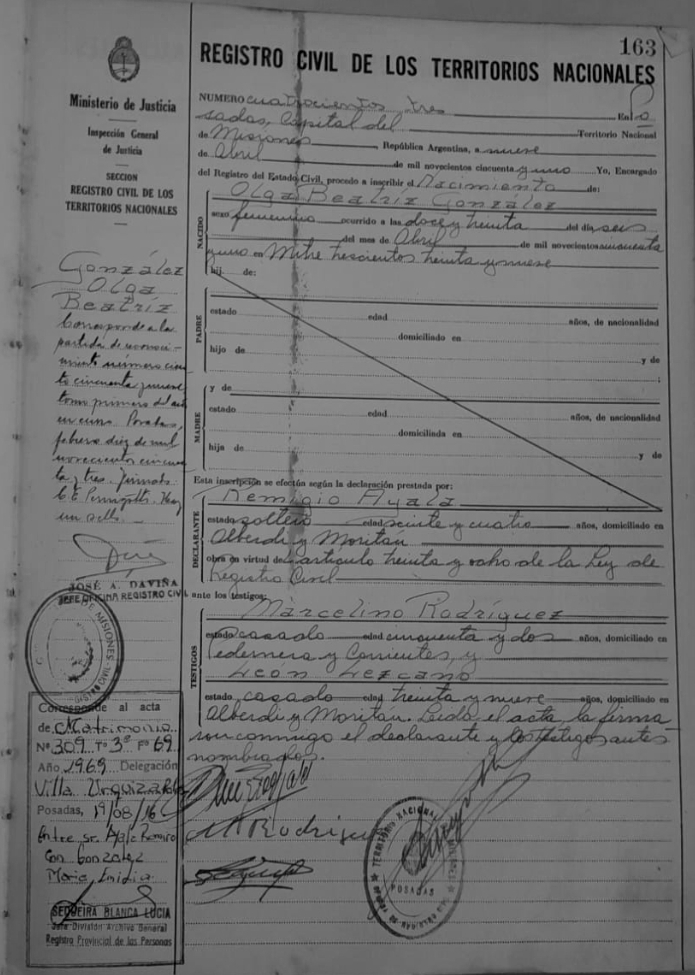 163
REGISTRO CIVIL DE LOS TERRITORIOS NACIONALES
Ministerio de Justicia
Inspección General
de Justicia
SECCION
REGISTRO CIVIL DE LOS
TERRITORIOS NACIONALES
NUMERO cuatrocientos tres En Po
sadas, Capital del Territorio Nacional
de Misiones República Argentina, a nueve
de Abril de mil novecientos cincuenta y uno Yo, Encargado
del Registro del Estado Civil, procedo a inscribir el Nacimiento de:
Olga Beatriz González
NACIDO
sexo femenino ocurrido a las doce y treinta del día seis
del mes de Abril de mil novecientos cincuenta
y uno en Mitre trescientos treinta y nueve
hij de:
PADRE
estado edad años, de nacionalidad
domiciliado en
hijo de y de
MADRE
y de
estado edad años, de nacionalidad
domiciliada en
hija de y de
González
Olga
Beatríz
Corresponde a la
partida de reconoci-
miento número cien
to cincuenta y nueve
tomo primero del año
en curso. Posadas,
febrero diez de mil
novecientos cincuen
ta y tres. Firmado:
C. E. Hay
un sello.
JOSÉ A. DAVIÑA
JEFE OFICINA REGISTRO CIVIL
Esta inscripción se efectúa según la declaración prestada por:
DECLARANTE
Remigio Ayala
estado soltero edad veinte y cuatro años, domiciliado en
Alberdi y Moritán
obra en virtud del artículo treinta y ocho de la Ley de
Registro Civil
ante los testigos:
TESTIGOS
Marcelino Rodríguez
estado casado edad cincuenta y dos años, domiciliado en
Pedernera y Corrientes, y
León Lezcano
estado casado edad treinta y nueve años, domiciliado en
Alberdi y Moritán. Leída el acta, la firma
ron conmigo el declarante y los testigos antes
nombrados.
DE MISIONES
Corresponde al acta
de Matrimonio
Nº 309 Tº 3º Fº 69
Año 1969 Delegación
Villa Urquiza
Posadas, 19/08/16
Entre sr. Ayala
Con Gonzalez
Maria
SEQUEIRA BLANCA LUCIA
Jefe División Archivo General
Registro Provincial de las Personas
TERRITORIO NACIONAL DE MISIONES
POSADAS